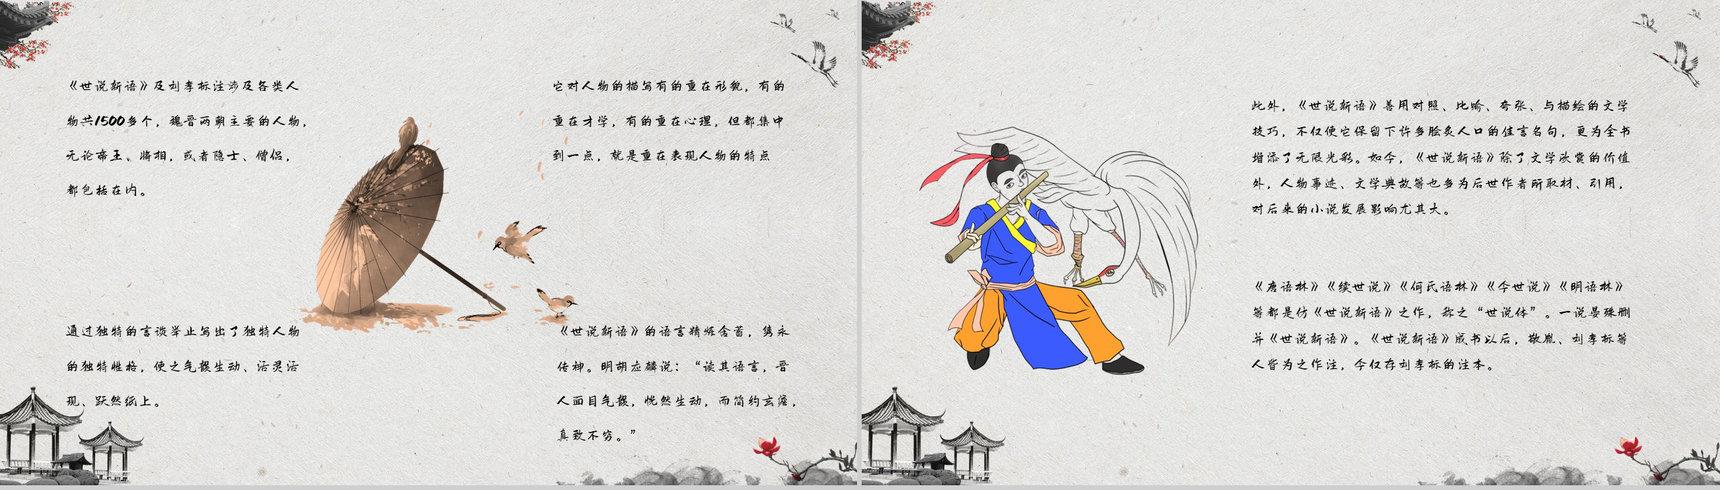 《世说新语》及刘孝标注涉及各类人
物共1500多个，魏晋两朝主要的人物，
无论帝王、将相，或者隐士、僧侣，
都包括在内。
它对人物的描写有的重在形貌，有的
重在才学，有的重在心理，但都集中
到一点，就是重在表现人物的特点
通过独特的言谈举止写出了独特人物
的独特性格，使之气韵生动、活灵活
现、跃然纸上。
《世说新语》的语言精炼含蓄，隽永
传神。明胡应麟说：“读其语言，晋
人面目气韵，恍然生动，而简约玄澹，
真致不穷。”
此外，《世说新语》善用对照、比喻、夸张、与描绘的文学
技巧，不仅使它保留下许多脍炙人口的佳言名句，更为全书
增添了无限光彩。如今，《世说新语》除了文学欣赏的价值
外，人物事迹、文学典故等也多为后世作者所取材、引用，
对后来的小说发展影响尤其大。
《唐语林》《续世说》《何氏语林》《今世说》《明语林》
等都是仿《世说新语》之作，称之“世说体”。一说晏殊删
并《世说新语》。《世说新语》成书以后，敬胤、刘孝标等
人皆为之作注，今仅存刘孝标的注本。